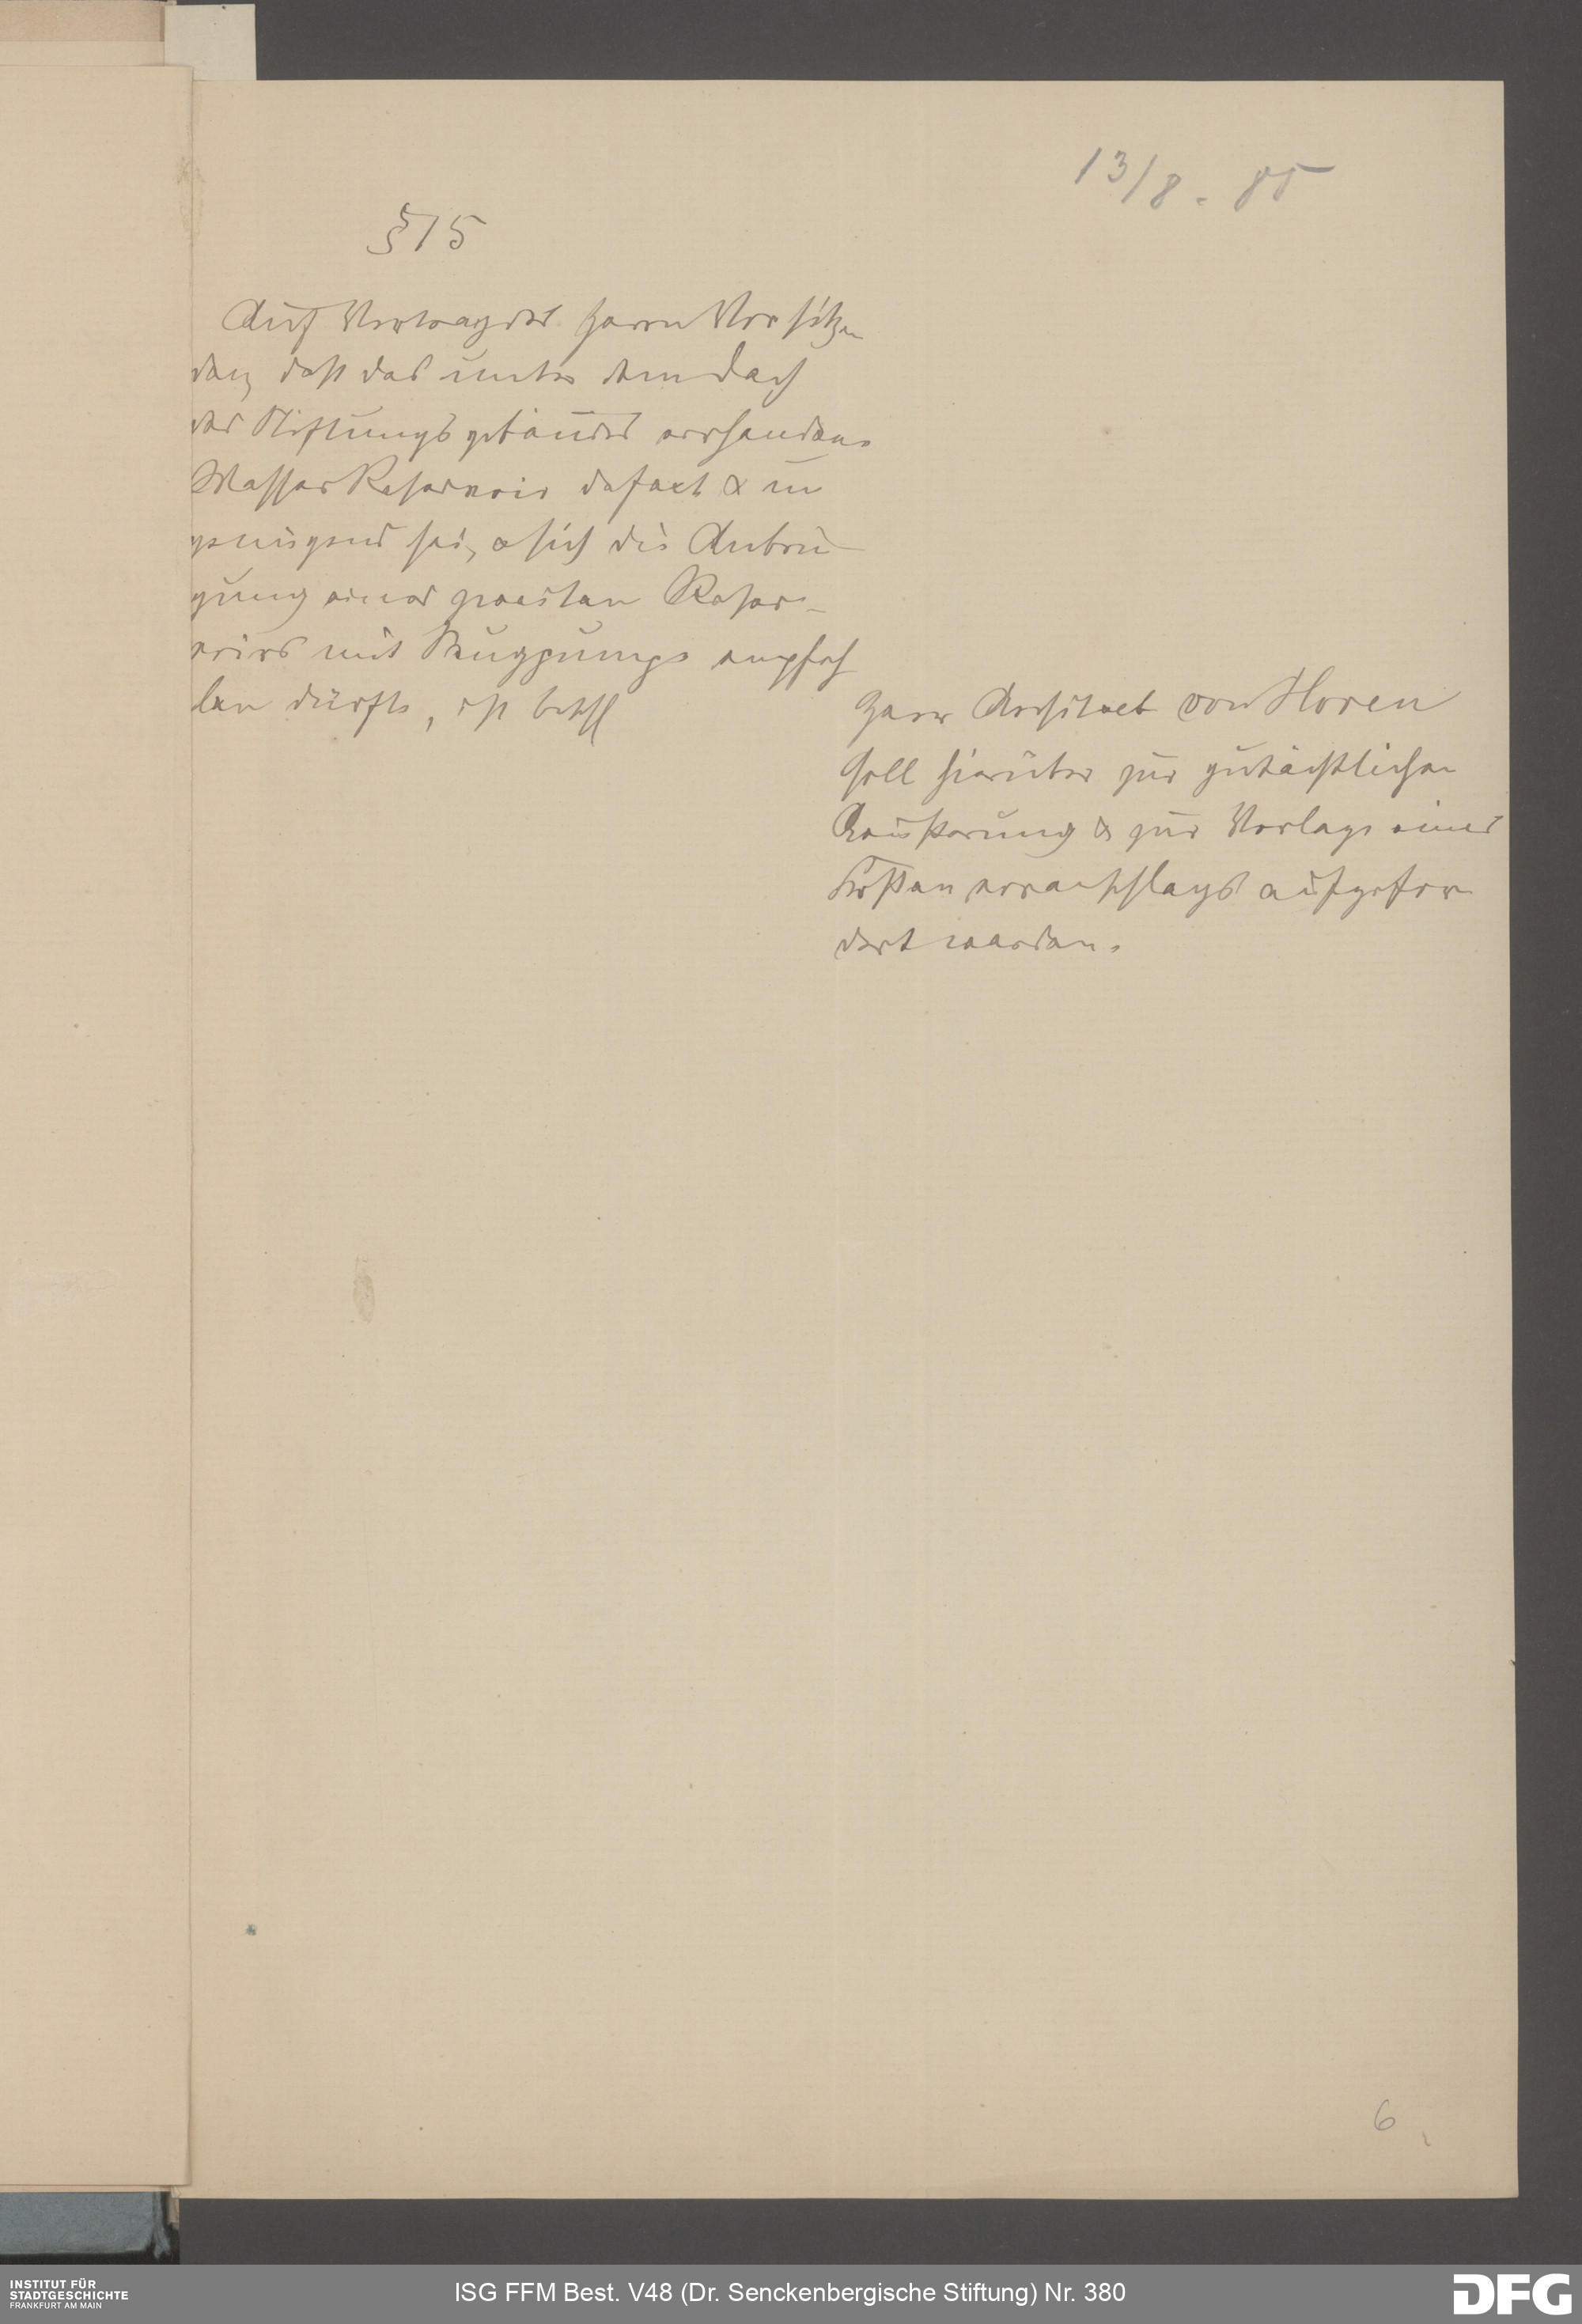 13/8. 85
§ 15
Auf Vortrag des Herrn Vorsitzen
den, daß das unter dem Dach
des Stiftungsgebäudes vorhandene
Wasser Reservoir defect & un
genügend sei, & sich die Anbrin
gung eines zweiten Reser-
voirs mit empfeh
len dürfte, ist beschl
Herr Architect von Hoven
soll hierüber zur gutächtlichen
Aeußerung & zur Vorlage eines
Kostenvoranschlags aufgefor
dert werden.
6
INSTITUT FÜR
STADTGESCHICHTE
FRANKFURT AM MAIN
ISG FFM Best. V48 (Dr. Senckenbergische Stiftung) Nr. 380
DFG